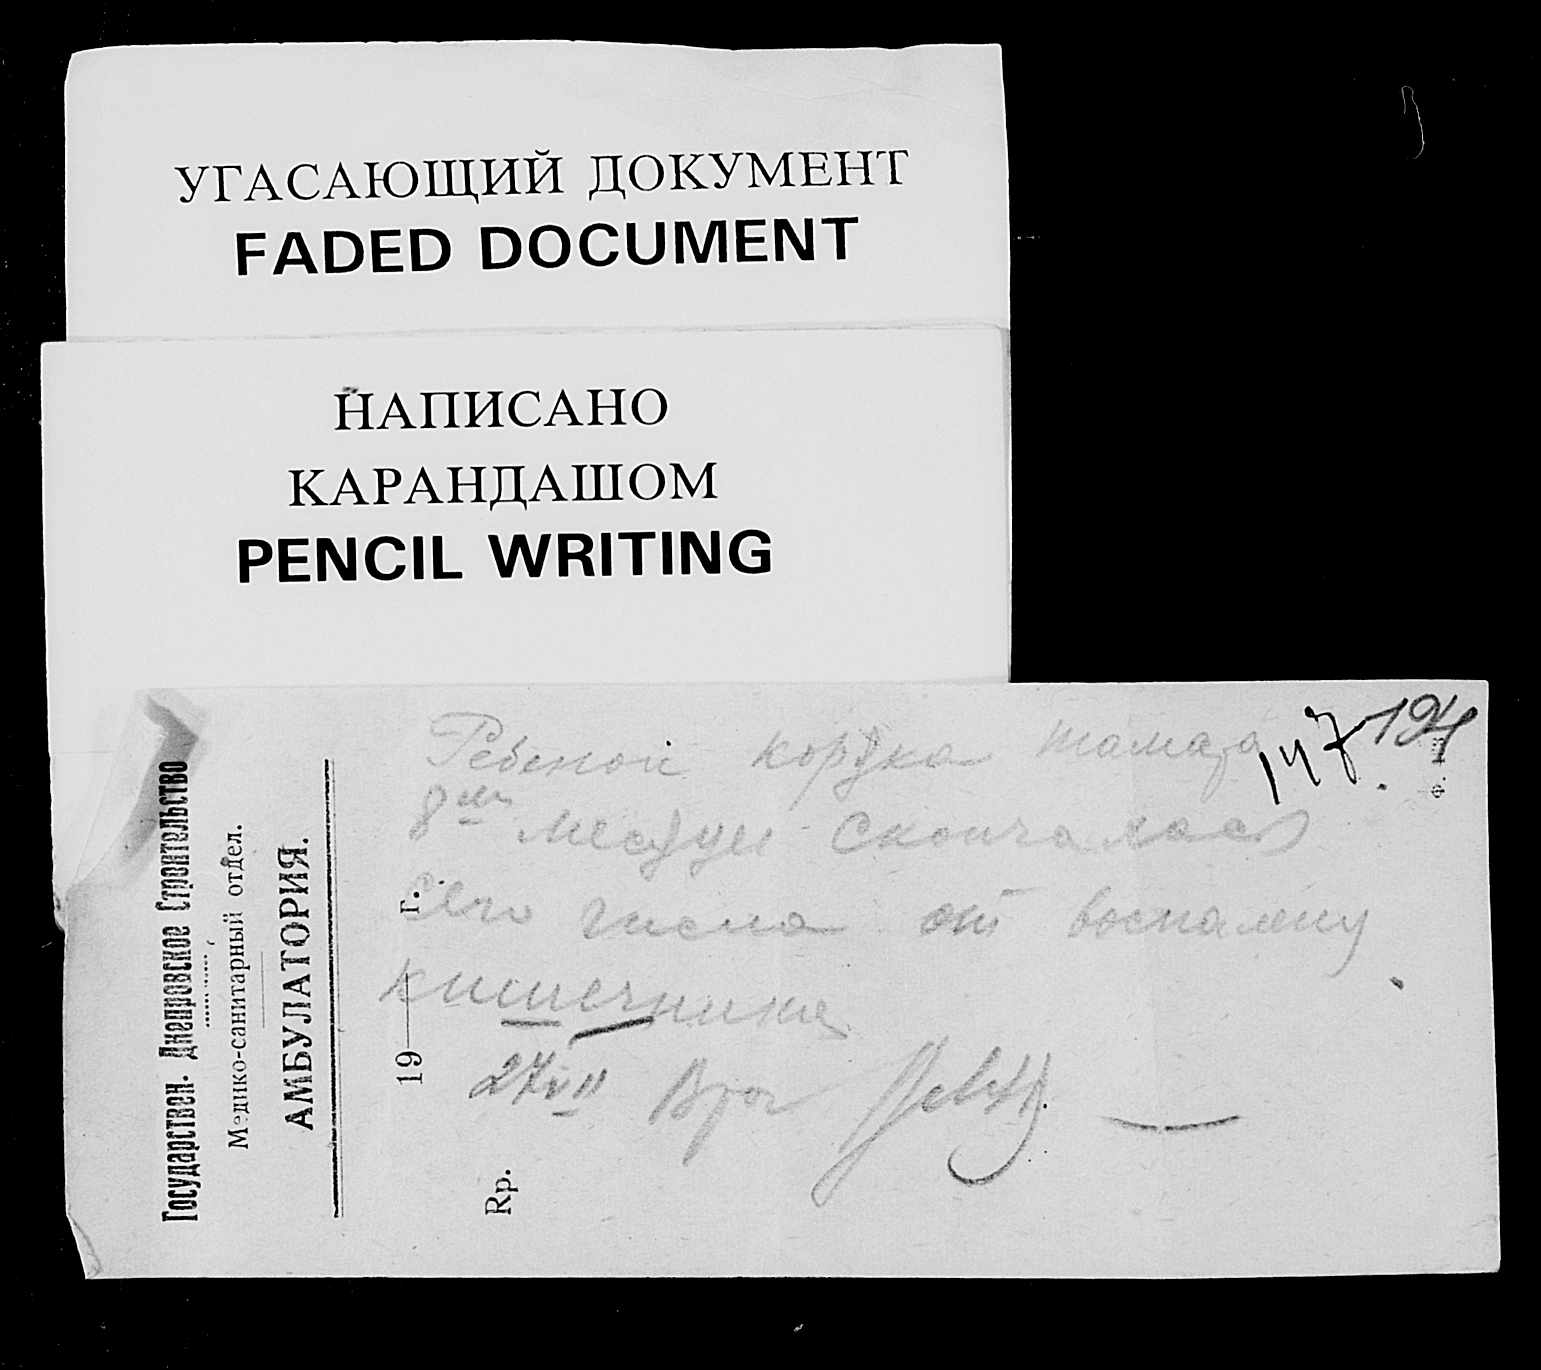 УГАСАЮЩИЙ ДОКУМЕНТ
FADED DOCUMENT
НАПИСАНО
КАРАНДАШОМ
PENCIL WRITING
Государствен. Днепровское Строительство
Медико-санитарный отдел.
АМБУЛАТОРИЯ.
19 г.
Rp.
147
Тамара
8 ми скончалась
сего числа от
кишечника
27 VII Врач